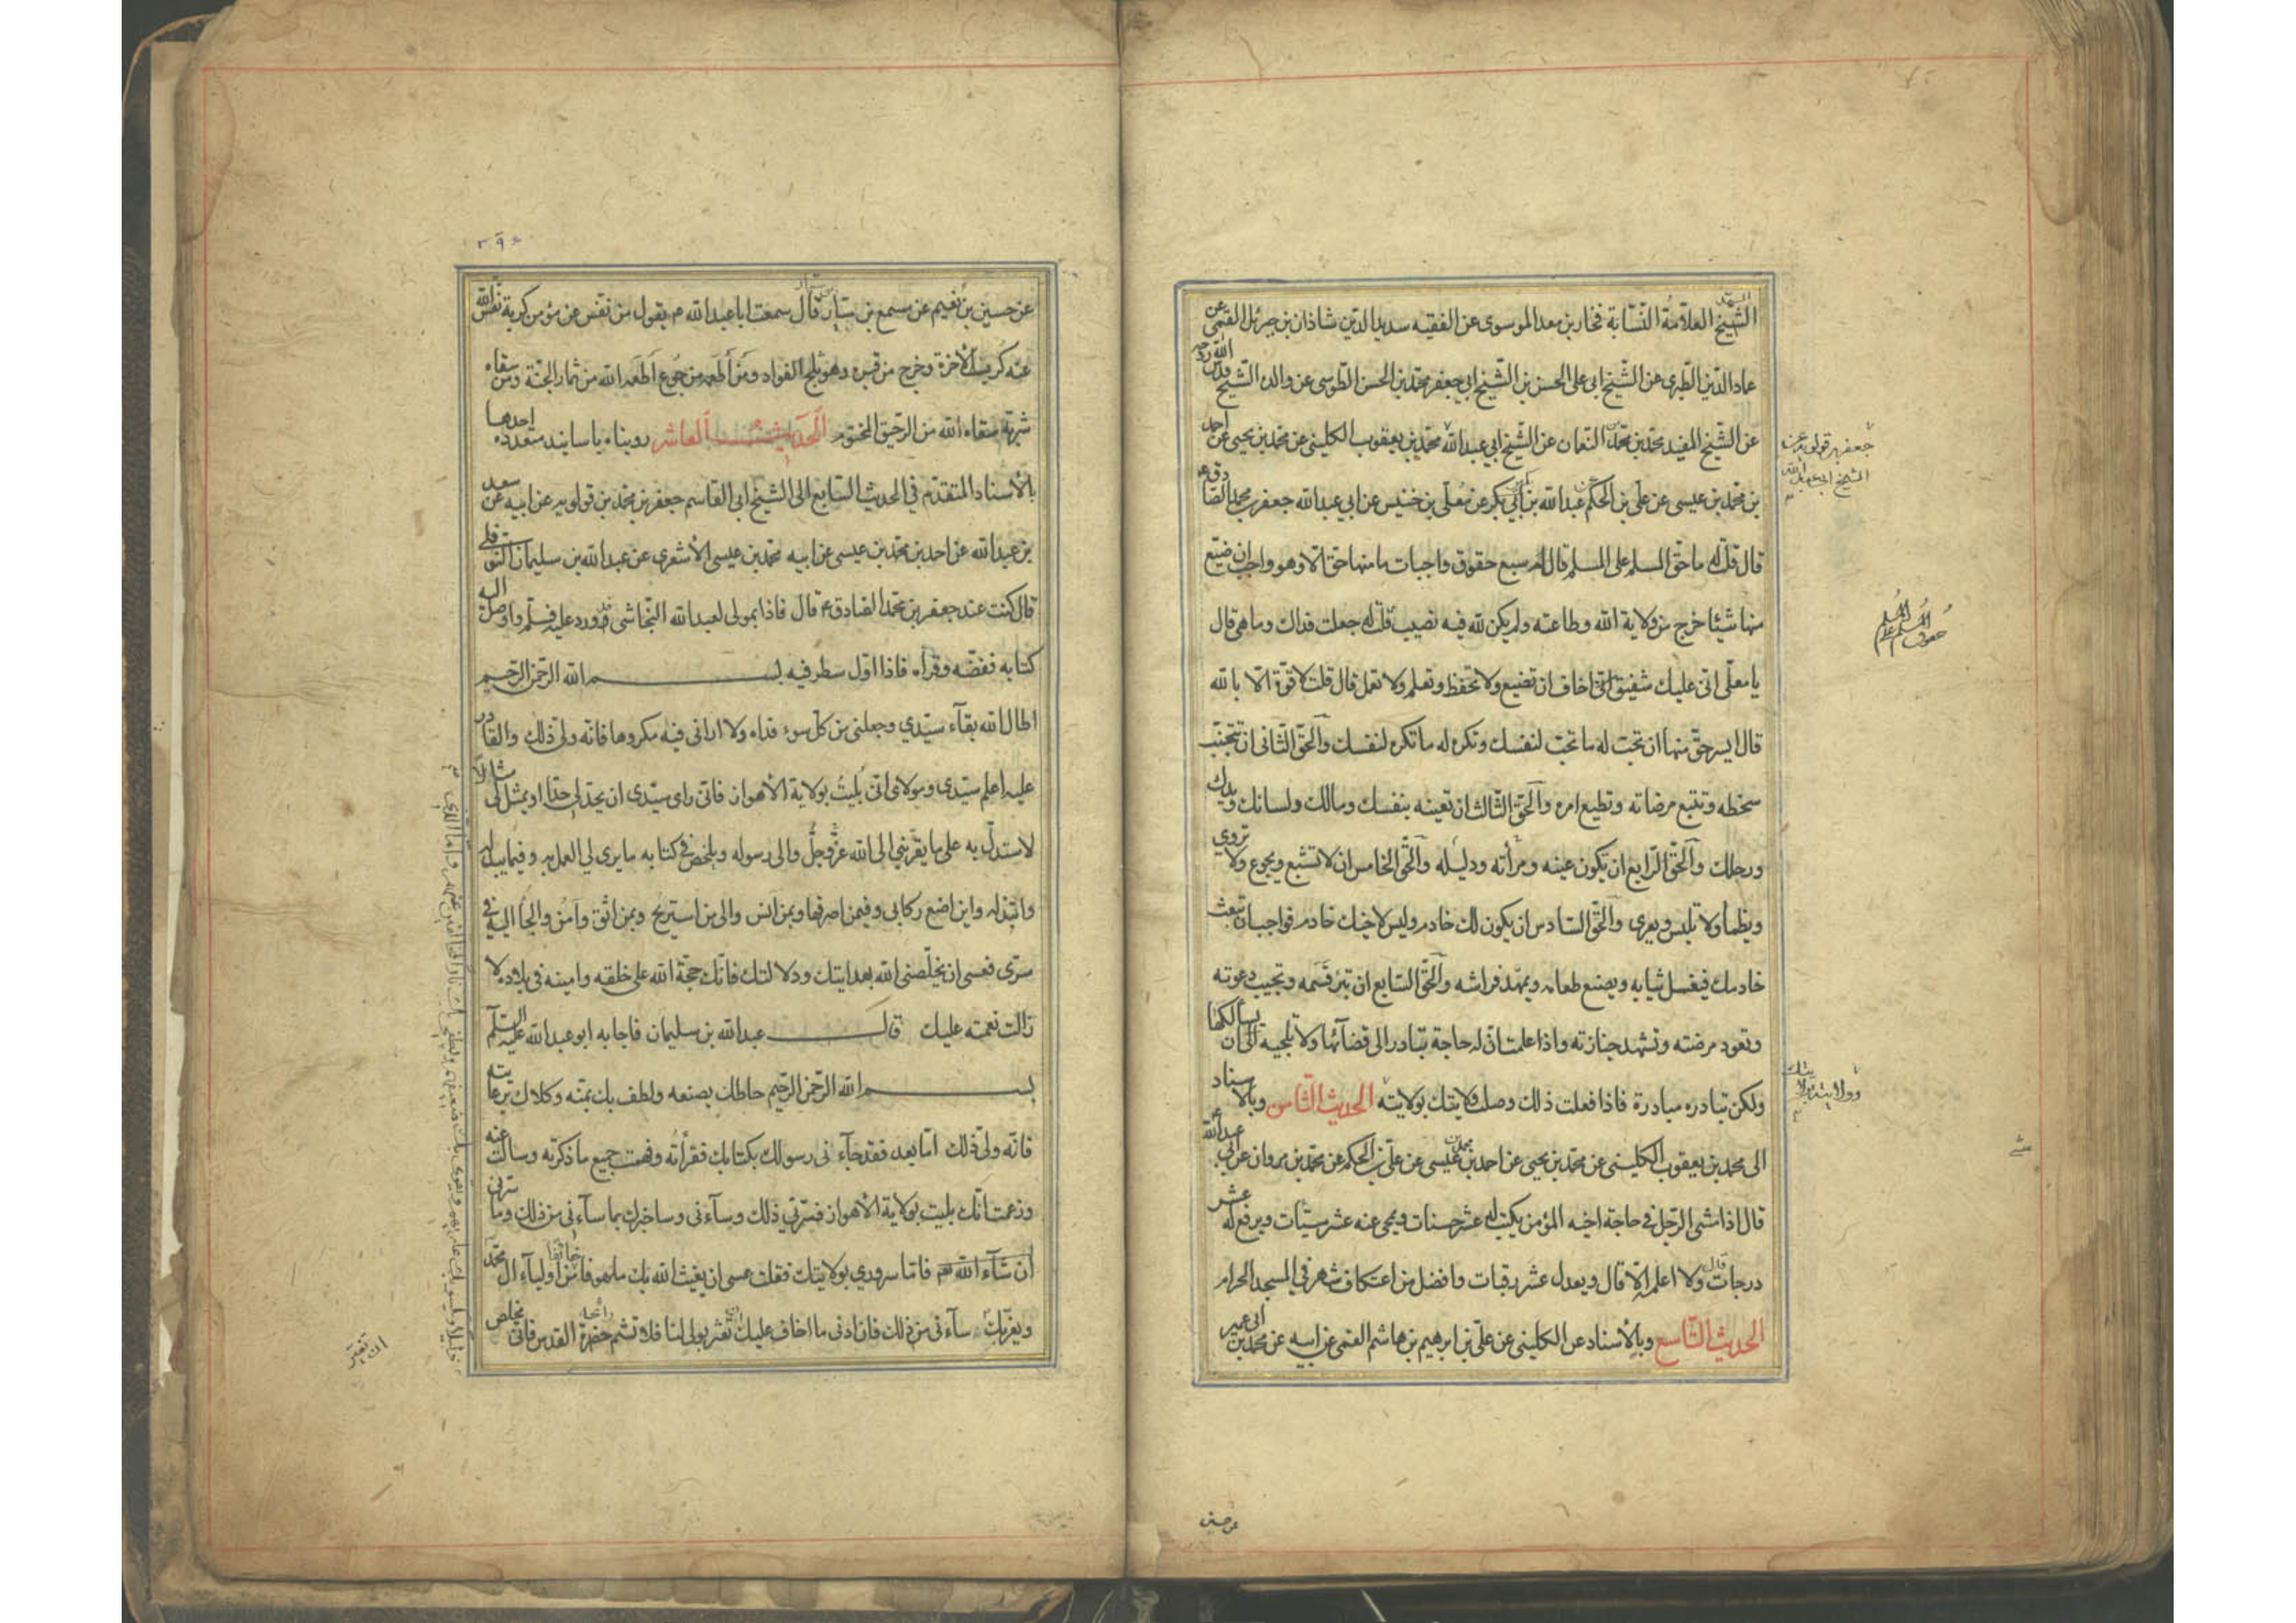 الشيخ العلامة النسابة فخار بن معد الموسوى عن الفقيه سديد الدين شاذان بن جبرئل القمى عن
عماد الدين الطبرى عن الشيخ ابى على الحسن بن الشيخ ابى جعفر محمد بن الحسن الطوسى عن والده الشيخ قدس الله روحه
عن الشيخ المفيد محمد بن محمد بن النعمان عن الشيخ ابى عبد الله محمد بن يعقوب الكلينى عن محمد بن يحيى عن احمد
بن محمد بن عيسى عن على بن الحكم عبد الله بن ابى بكر عن معلى بن خنيس عن ابى عبد الله جعفر بن محمد الصادق ع
قال قلت له ما حق المسلم على المسلم قال له سبع حقوق واجبات ما منها حق الا وهو واجب ان ضيع
منها شيئا خرج من ولاية الله وطاعته ولم يكن لله فيه نصيب قلت له جعلت فداك وما هى قال
يا معلى انى عليك شفيق انى اخاف ان تضيع ولا تحفظ وتعلم ولا تعمل قال قلت لا قوة الا بالله
قال ايسر حق منها ان تحب له ما تحب لنفسك وتكره له ما تكره لنفسك والحق الثانى ان تجتنب
سخطه وتتبع مرضاته وتطيع امره والحق الثالث ان تعينه بنفسك ومالك ولسانك ويدك
ورجلك والحق الرابع ان يكون عينه ومرأته ودليله والحق الخامس ان لا تشبع ويجوع ولا تروى
ويظمأ ولا تلبس ويعرى والحق السادس ان يكون لك خادم وليس لاخيك خادم فواجب ان تبعث
خادمك فيغسل ثيابه ويصنع طعامه ويمهد فراشه والحق السابع ان تبر قسمه وتجيب دعوته
وتعود مرضته وتشهد جنازته واذا علمت ان له حاجة تبادر الى قضائها ولا تلجيه الى ان يسألكها
ولكن تبادره مبادرة فاذا فعلت ذلك وصلت ولايتك بولايته الحديث الثامن وبالاسناد
الى محمد بن يعقوب الكلينى عن محمد بن يحيى عن احمد بن محمد بن عيسى عن على بن الحكم عن محمد بن مروان عن ابى عبد الله ع
قال اذا مشى الرجل فى حاجة اخيه المؤمن يكتب له عشر حسنات ويمحى عنه عشر سيئات ويرفع له عشر
درجات قال ولا اعلمه الا قال ويعدل عشر رقبات وافضل من اعتكاف شهر فى المسجد الحرام
الحديث التاسع وبالاسناد عن الكلينى عن على بن ابرهيم بن هاشم القمى عن ابيه عن محمد بن ابى عمير
جعفر بن قولويه عن
الشيخ ابى عبد الله
حقوق المسلم على المسلم
وولايته بولايتك
عن حسين
٣٩٤
عن حسين بن نعيم عن مسمع بن سيار قال سمعت ابا عبد الله ع يقول من نفس عن مؤمن كربة نفس الله
عنه كربة الآخرة وخرج من قبره وهو ثلج الفواد ومن أطعمه من جوع أطعمه الله من ثمار الجنة ومن سقاه
شربة سقاه الله من الرحيق المختوم الحديث العاشر رويناه باسانيد متعدده احدها
بالأسناد المتقدم فى الحديث السابع الى الشيخ ابى القاسم جعفر بن محمد بن قولويه عن ابيه عن سعد
بن عبد الله عن احمد بن محمد بن عيسى عن ابيه محمد بن عيسى الأشعرى عن عبد الله بن سليمان النوفلى
قال كنت عند جعفر بن محمد الصادق ع قال فاذا بمولى لعبد الله النجاشى قد ورد عليه فسلم واوصل اليه
كتابه ففضه وقراه فاذا اول سطر فيه بسم الله الرحمن الرحيم
اطال الله بقآء سيدي وجعلنى من كل سوء فداه ولا ارانى فيه مكروها فانه ولى ذلك والقادر
عليه اعلم سيدى ومولاى انى بليت بولاية الأهواز فان راى سيدى ان يحد لى حدا او يمثل لى مثالا
لاستدل به على ما يقربنى الى الله عز وجل والى رسوله ويلخص فى كتابه ما يرى لى العمل به وفيما يبذله
وابتذله واين اضع زكاتى وفيمن اصرفها وبمن آنس والى من استريح وبمن اثق وآمن والجأ اليه فى
سرى فعسى ان يخلصنى الله بهدايتك ودلالتك فانك حجة الله على خلقه وامينه فى بلاده لا
زالت نعمته عليك قال عبد الله بن سليمان فاجابه ابو عبد الله عليه السلام
بسم الله الرحمن الرحيم حاطك بصنعه ولطف بك بمنه وكلاك برعايته
فانه ولى ذلك اما بعد فقد جآء نى رسولك بكتابك فقرأته وفهمت جميع ما ذكرته وسالت عنه
وزعمت انك بليت بولاية الأهواز فسرنى ذلك وسآءنى وساخبرك بما سآءنى من ذلك وما سرنى
ان شآء الله فاما سرورى بولايتك فقلت عسى ان يغيث الله بك ملهوفا خائفا من اوليآء ال محمد
ويعز بك سآءنى من ذلك فان ادنى ما اخاف عليك ان تعثر بولى لنا فلا تشم رائحة حضرة القدس فانى مخلص